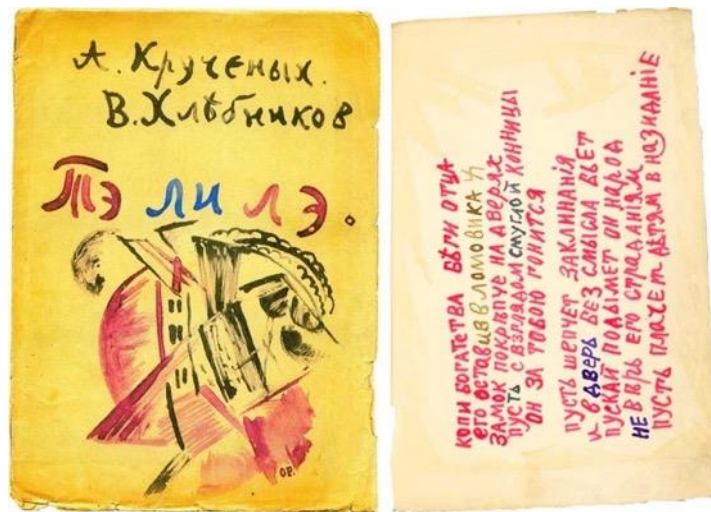 А. Крученых.
В. Хлѣбников
Тэ ли лэ.
ОР.
копи богатства бѣги отца
его оставив вломовиках
замок покрѣпче на дверях
пусть с взглядом смуглой конницы
он за тобою гонится
пусть шепчет заклинанія
и в дверь без смысла бьет
пускай подымет он народ
не вѣрь его страданіям
пусть плачет дѣтям в назиданіе